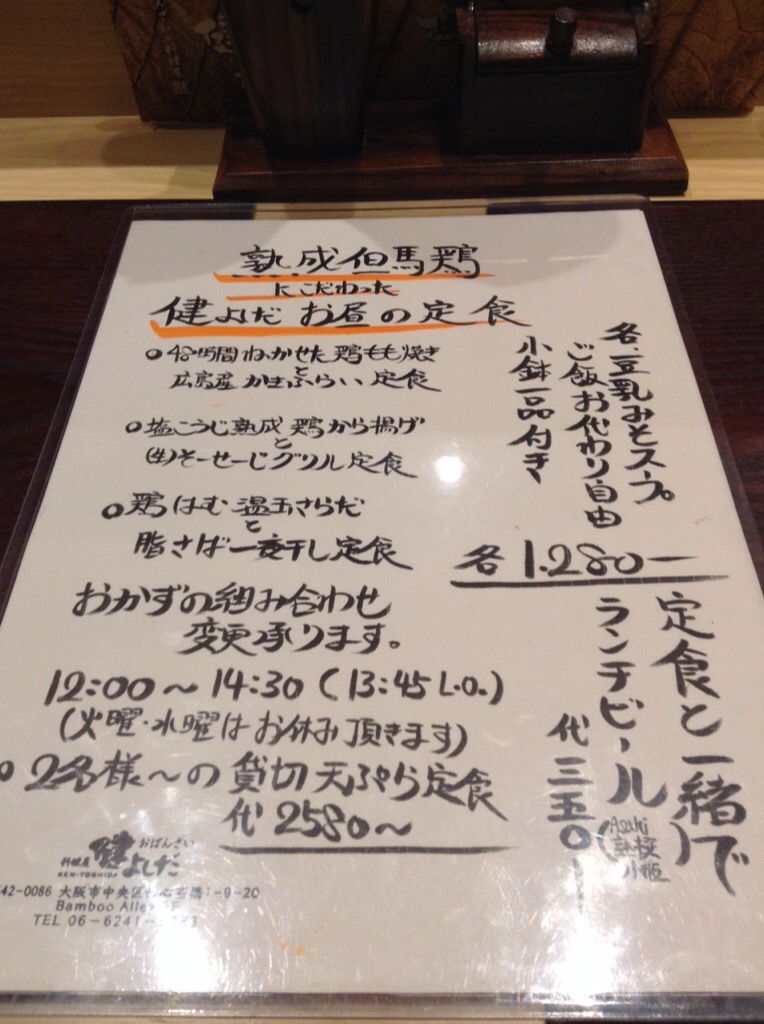 熟成但馬鶏
にこだわった
健よしだ お昼の定食
各、豆乳みそスープ。
ご飯お代わり自由
小鉢一品付き
○48時間ねかせた鶏もも焼き
と
広島産かきふらい定食
○塩こうじ熟成鶏から揚げ
と
(生)そーせーじグリル定食
○鶏はむ温玉さらだ
と
脂さば一夜干し定食
各 1.280ー
おかずの組み合わせ
変更承ります。
12:00〜14:30(13:45 L.O.)
(火曜・水曜はお休み頂きます)
○2名様〜の貸切天ぷら定食
代 2580〜
定食と一緒で
ランチビール
(Asahi
熟撰
小瓶)
代 三五〇ー
おばんざい
料理屋 健よしだ
KEN-YOSHIDA
542-0086 大阪市中央区 -9-20
Bamboo
TEL 06-6241-